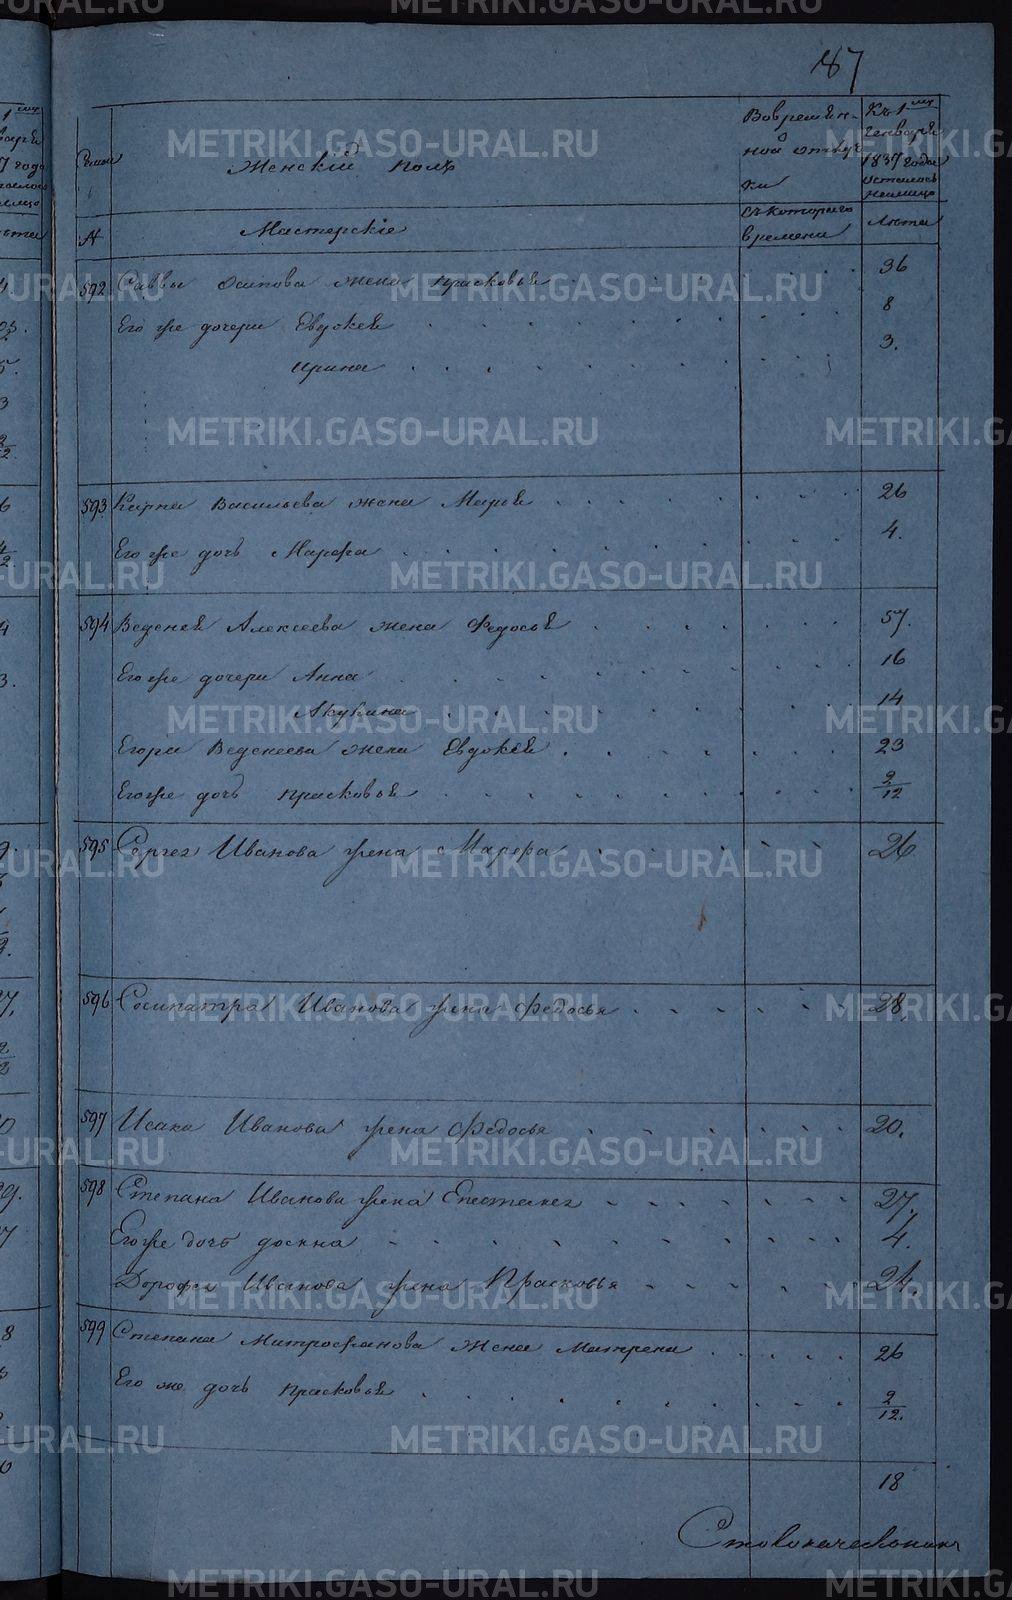 187
Семьи
Женскій полъ
Во времен-
ной отлуч
ки
Къ 1му
Генваря
1837 года
осталось
налицо
№
Мастерскіе
съ котораго
времени
Лѣта
592 Саввы Осипова жена Прасковья 36
Его же дочери Евдокея 8
Ирина 3.
593 Карпа Васильева жена Марья 26
Его же дочь Марфа 4.
594 Веденея Алексеева жена Федосья 57
Его же дочери Анна 16
Акулина 14
Егора Веденеева жена Евдокея 23
Его же дочь Прасковья 2/12
595 Сергея Иванова жена Марфа 26
596 Сосипатра Иванова жена Федосья 28.
597 Исака Иванова жена Федосья 20.
598 Степана Иванова жена 27.
Его же дочь 4.
Дорофея Иванова жена Прасковья 24.
599 Степана Митрофанова жена Матрена 26
Его же дочь Прасковья 2/12.
18
Столоначальникъ
METRIKI.GASO-URAL.RU